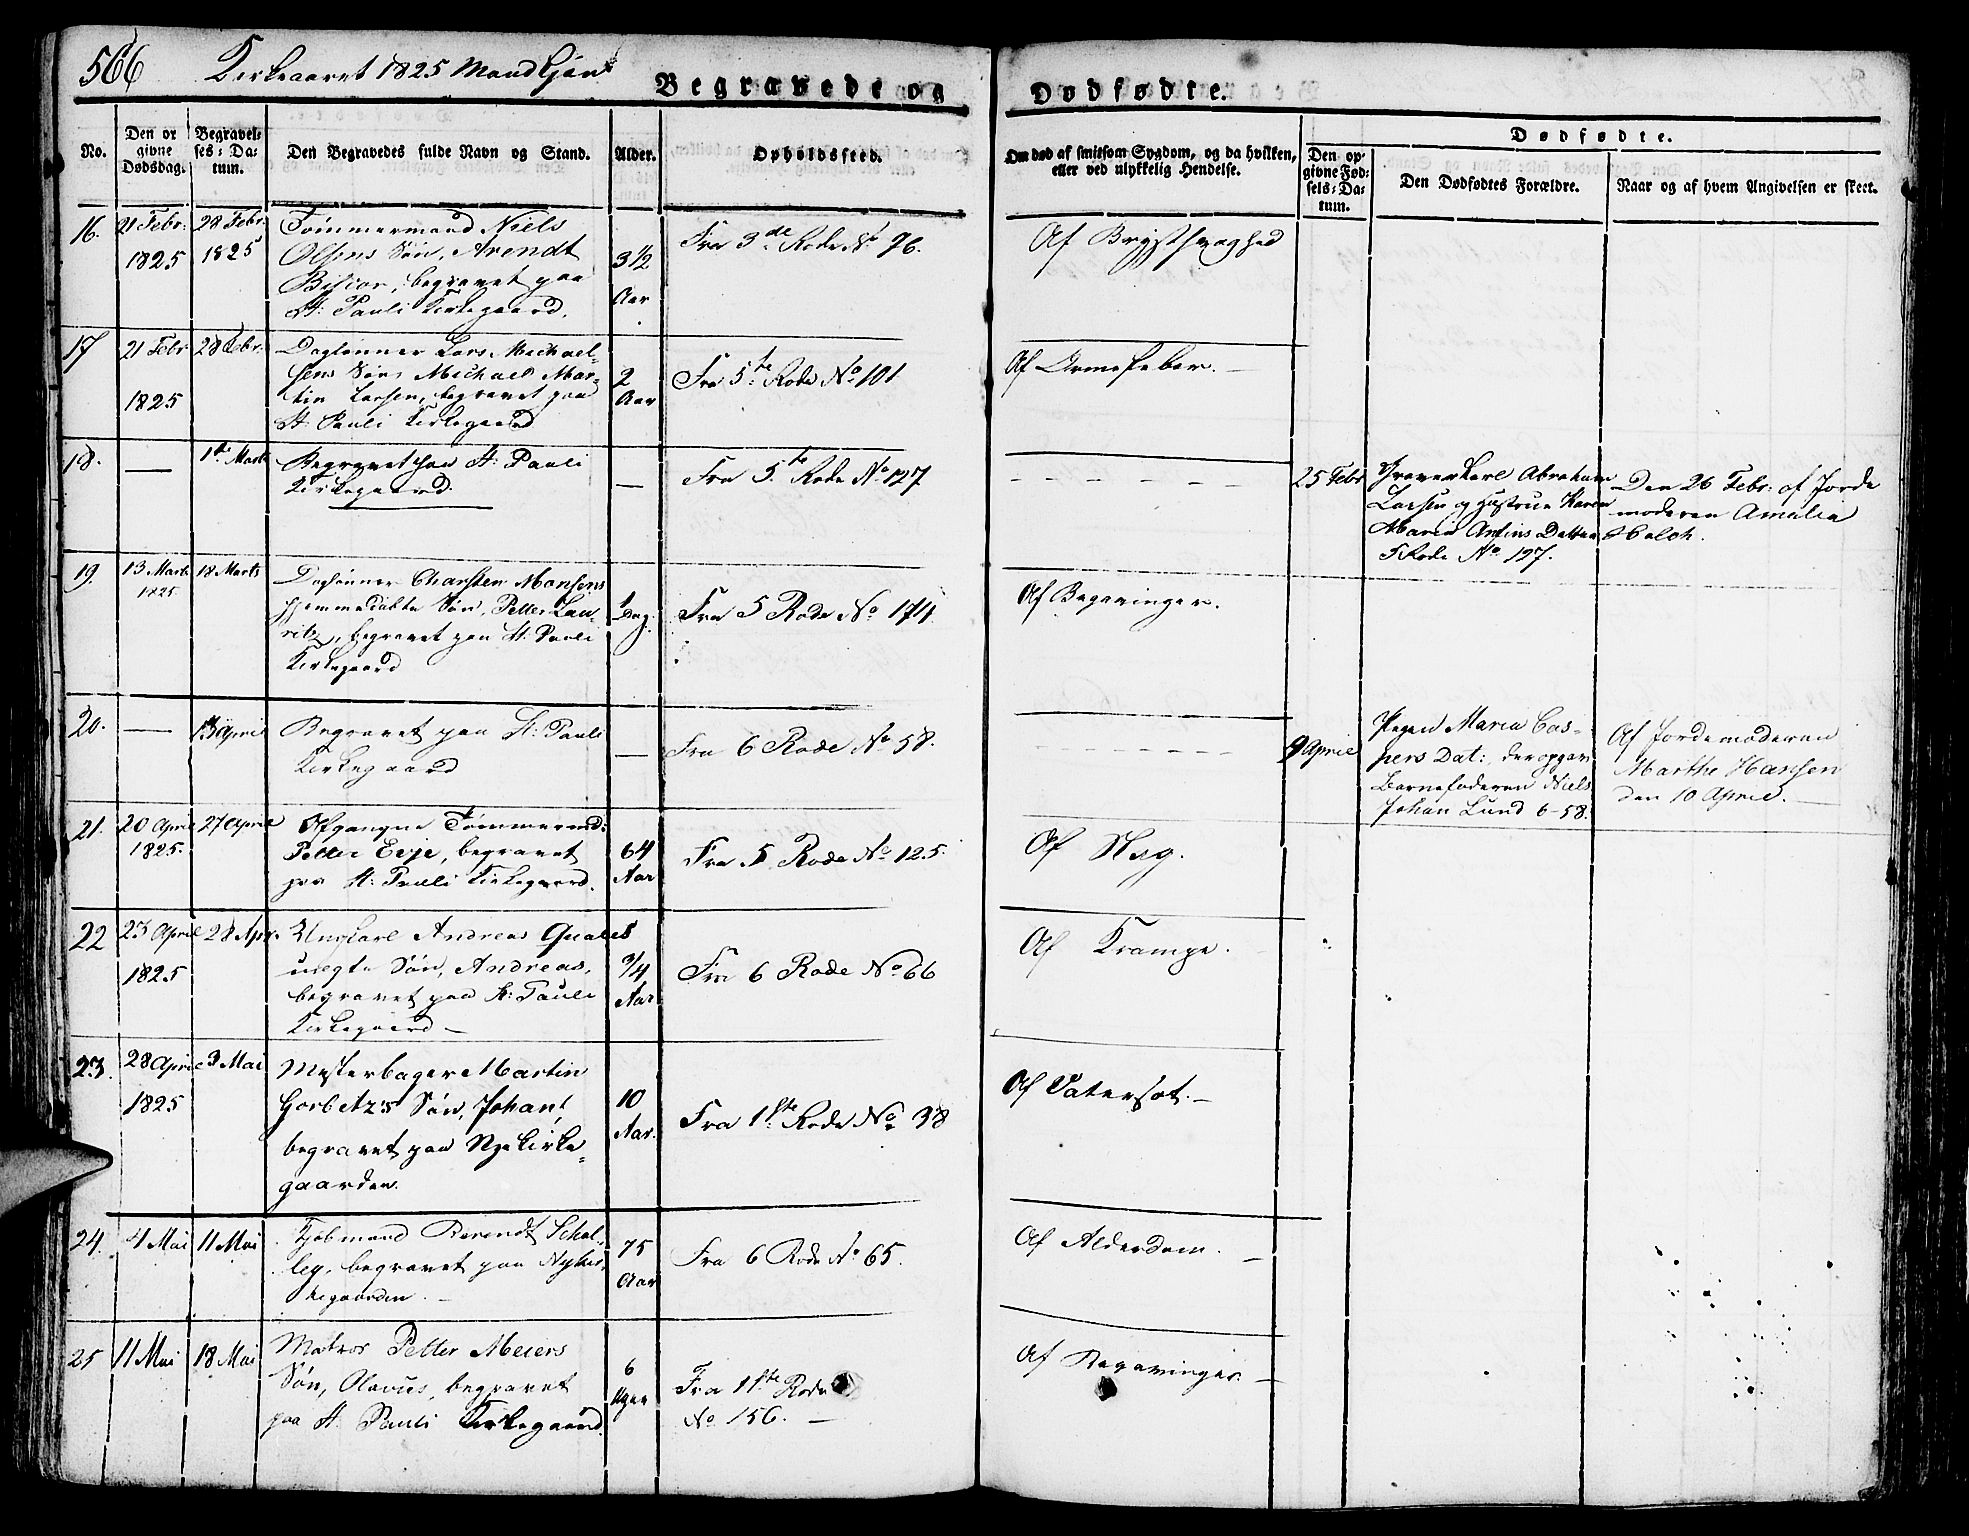 566 Kirkeaaret 1825 Mandkjøn
Begravede og Dødfødte.
No.
Den op
givne
Dødsdag.
Begravel-
ses-Da-
tum.
Den Begravedes fulde Navn og Stand.
Alder.
Opholdssted.
Om død af smitsom Sygdom, og da hvilken,
eller ved ulykkelig Hendelse.
Dødfødte.
Den op-
givne Fød-
sels-Da-
tum.
Den Dødfødtes Forældre.
Naar og af hvem Angivelsen er skeet.
16.
21 Febr.
1825
28 Febr.
1825
Tømmermand Niels
Olsens Søn, Arendt
begravet paa
St. Pauli Kirkegaard.
3 1/2
Aar
Fra 3de Rode No 96.
Af Brystsvaghed
17
21 Febr
1825
28 Febr.
Daglønner Lars Michael-
sens Søn Michael Mar-
tin Larsen, begravet paa
St. Pauli Kirkegaard
2
Aar
Fra 5te Rode No 101
Af Ormefeber.
18.
—
1ste Marts
Begravet paa St. Pauli
Kirkegaard.
—
Fra 5te Rode No 127
25 Febr
Abraham
Larsen og Hustrue Karen
Maria Datter
5 Rode No 127.
Den 26 Febr. af Jorde
moderen Amalia
Holch.
19.
13 Marts
1825
18 Marts
Daglønner Charsten Monsens
hjemmedøbte Søn, Petter Lau-
ritz, begravet paa St. Pauli
Kirkegaard
1
Dag.
Fra 5 Rode No 174
Af Begavinger.
20.
—
13 April
Begravet paa St. Pauli
Kirkegaard
—
Fra 6 Rode No 58.
9 April
Pigen Maria Cas-
pers Dat:, der opgav
Barnefaderen Niels
Johan Lund 6-58.
Af Jordemoderen
Marthe Hansen
den 10 April.
21.
20 April
1825.
27 April
Afgangne Tømmermd:
Petter Erje, begravet
paa St. Pauli Kirkegaard.
64
Aar
Fra 5 Rode No 125.
Af Slag.
22
23 April
1825
28 Apr.
Ungkarl Andreas Quales
uegte Søn, Andreas,
begravet paa St. Pauli
Kirkegaard —
3/4
Aar
Fra 6 Rode No 66
Af Krampe.
23.
28 April
1825
3 Mai
Mesterbager Martin
Gorbetz's Søn, Johan,
begravet paa Nye Kirke-
gaarden.
10
Aar.
Fra 1ste Rode No 38
Af Vatersot. —
24.
4 Mai
11 Mai
Kjøbmand Berendt Schol-
ley, begravet paa Nykir-
kegaarden. —
75
Aar
Fra 6 Rode No 65.
Af Alderdom. —
25
11 Mai
18 Mai
Matros Petter Meiers
Søn, Olavus, begravet
paa St. Pauli Kirkegaard.
6
Uger
Fra 1ste Rode
No 156. —
Af Begavinger. —